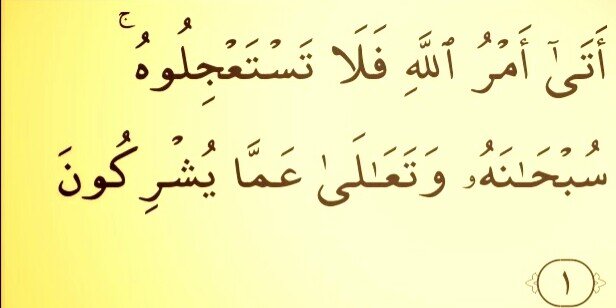 أَتَىٰٓ أَمْرُ ٱللَّهِ فَلَا تَسْتَعْجِلُوهُ ۚ
سُبْحَـٰنَهُۥ وَتَعَـٰلَىٰ عَمَّا يُشْرِكُونَ
١